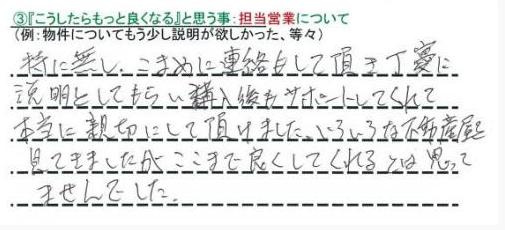 ③『こうしたらもっと良くなる』と思う事:担当営業について
(例:物件についてもう少し説明が欲しかった、等々)
特に無し、こまめに連絡もして頂き丁寧に
説明としてもらい購入後もサポートしてくれて
本当に親切にして頂けました。いろいろな不動産屋
見てきましたが ここまで良くしてくれるとは思って
ませんでした。